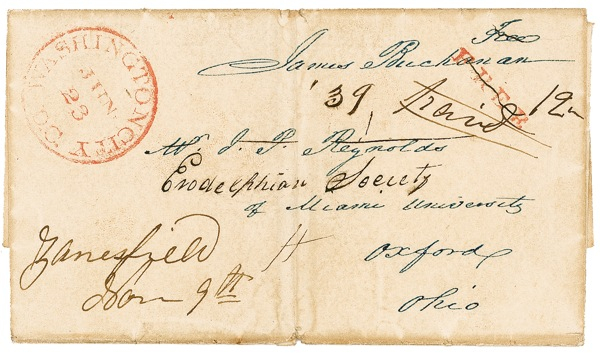 WASHINGTON CITY D.C.
JUN
23
Free
James Buchanan
FREE
'39
Paid
12
Mr. J. P. Reynolds
Erodelphian Society
of Miami University
Oxford
Ohio
Zanesfield
9th